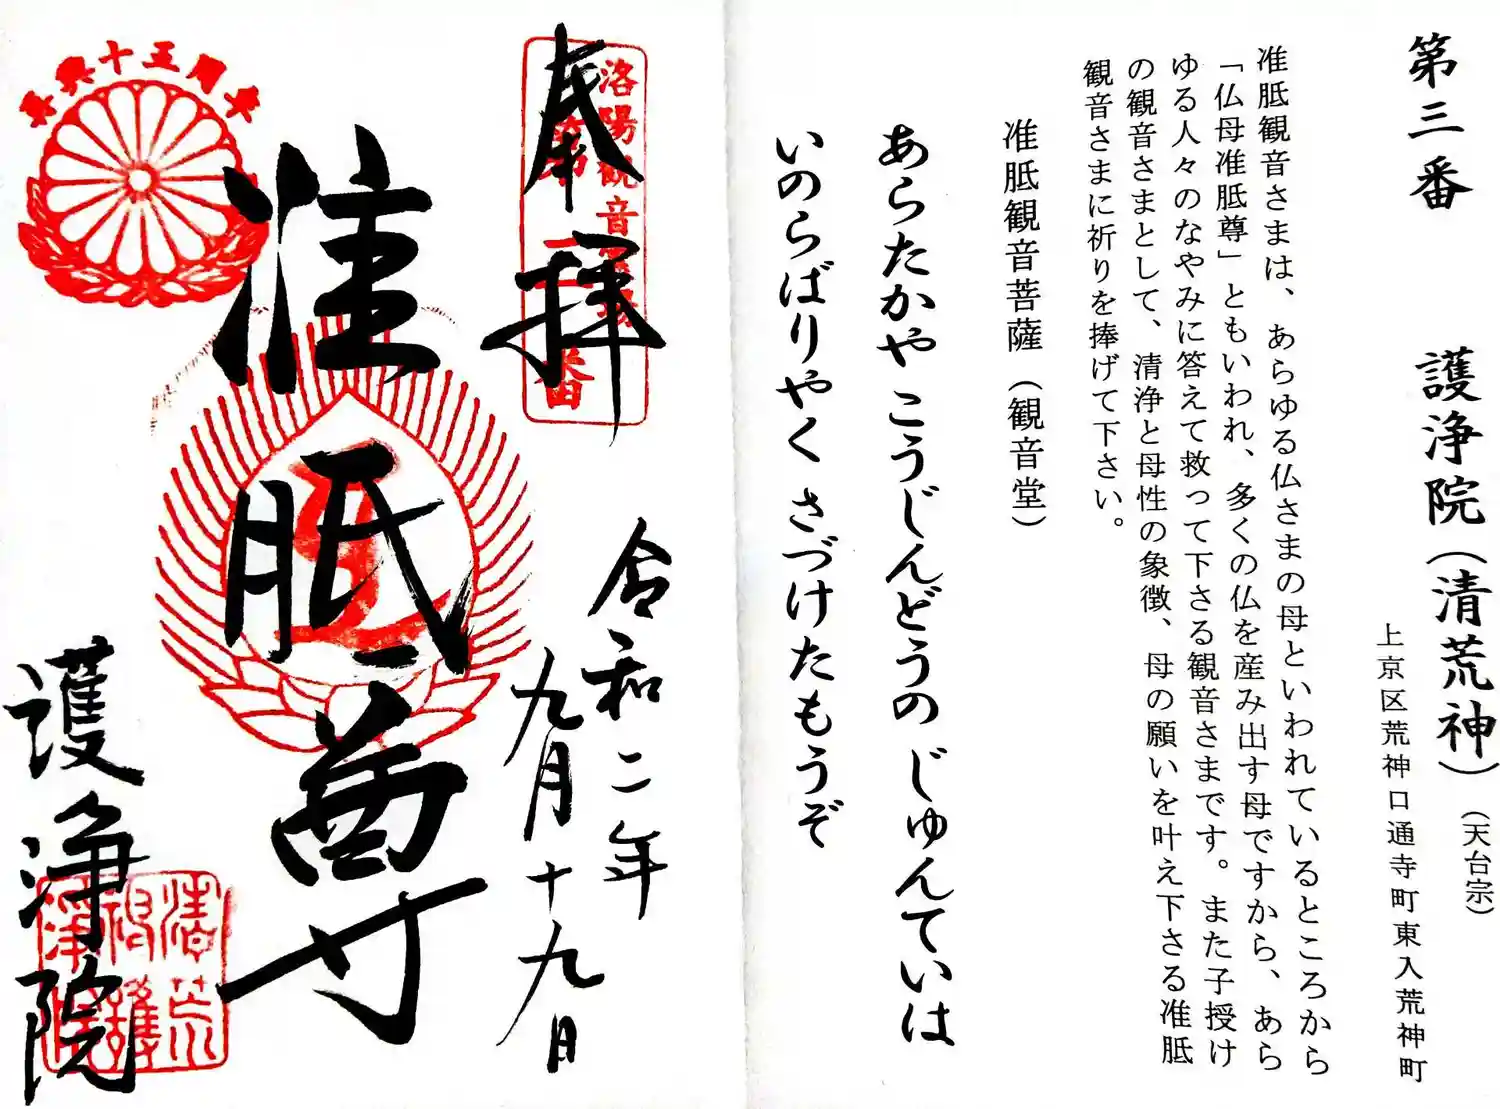 第三番 護浄院（清荒神）（天台宗）
上京区荒神口通寺町東入荒神町
准胝観音さまは、あらゆる仏さまの母といわれているところから
「仏母准胝尊」ともいわれ、多くの仏を産み出す母ですから、あら
ゆる人々のなやみに答えて救って下さる観音さまです。また子授け
の観音さまとして、清浄と母性の象徴、母の願いを叶え下さる准胝
観音さまに祈りを捧げて下さい。
准胝観音菩薩（観音堂）
あらたかや こうじんどうの じゅんていは
いのらばりやく さづけたもうぞ
洛陽観音霊場
第三番
奉拝
令和二年
九月十九日
准胝尊
復興十五周年
護浄院
清荒
神護
浄院